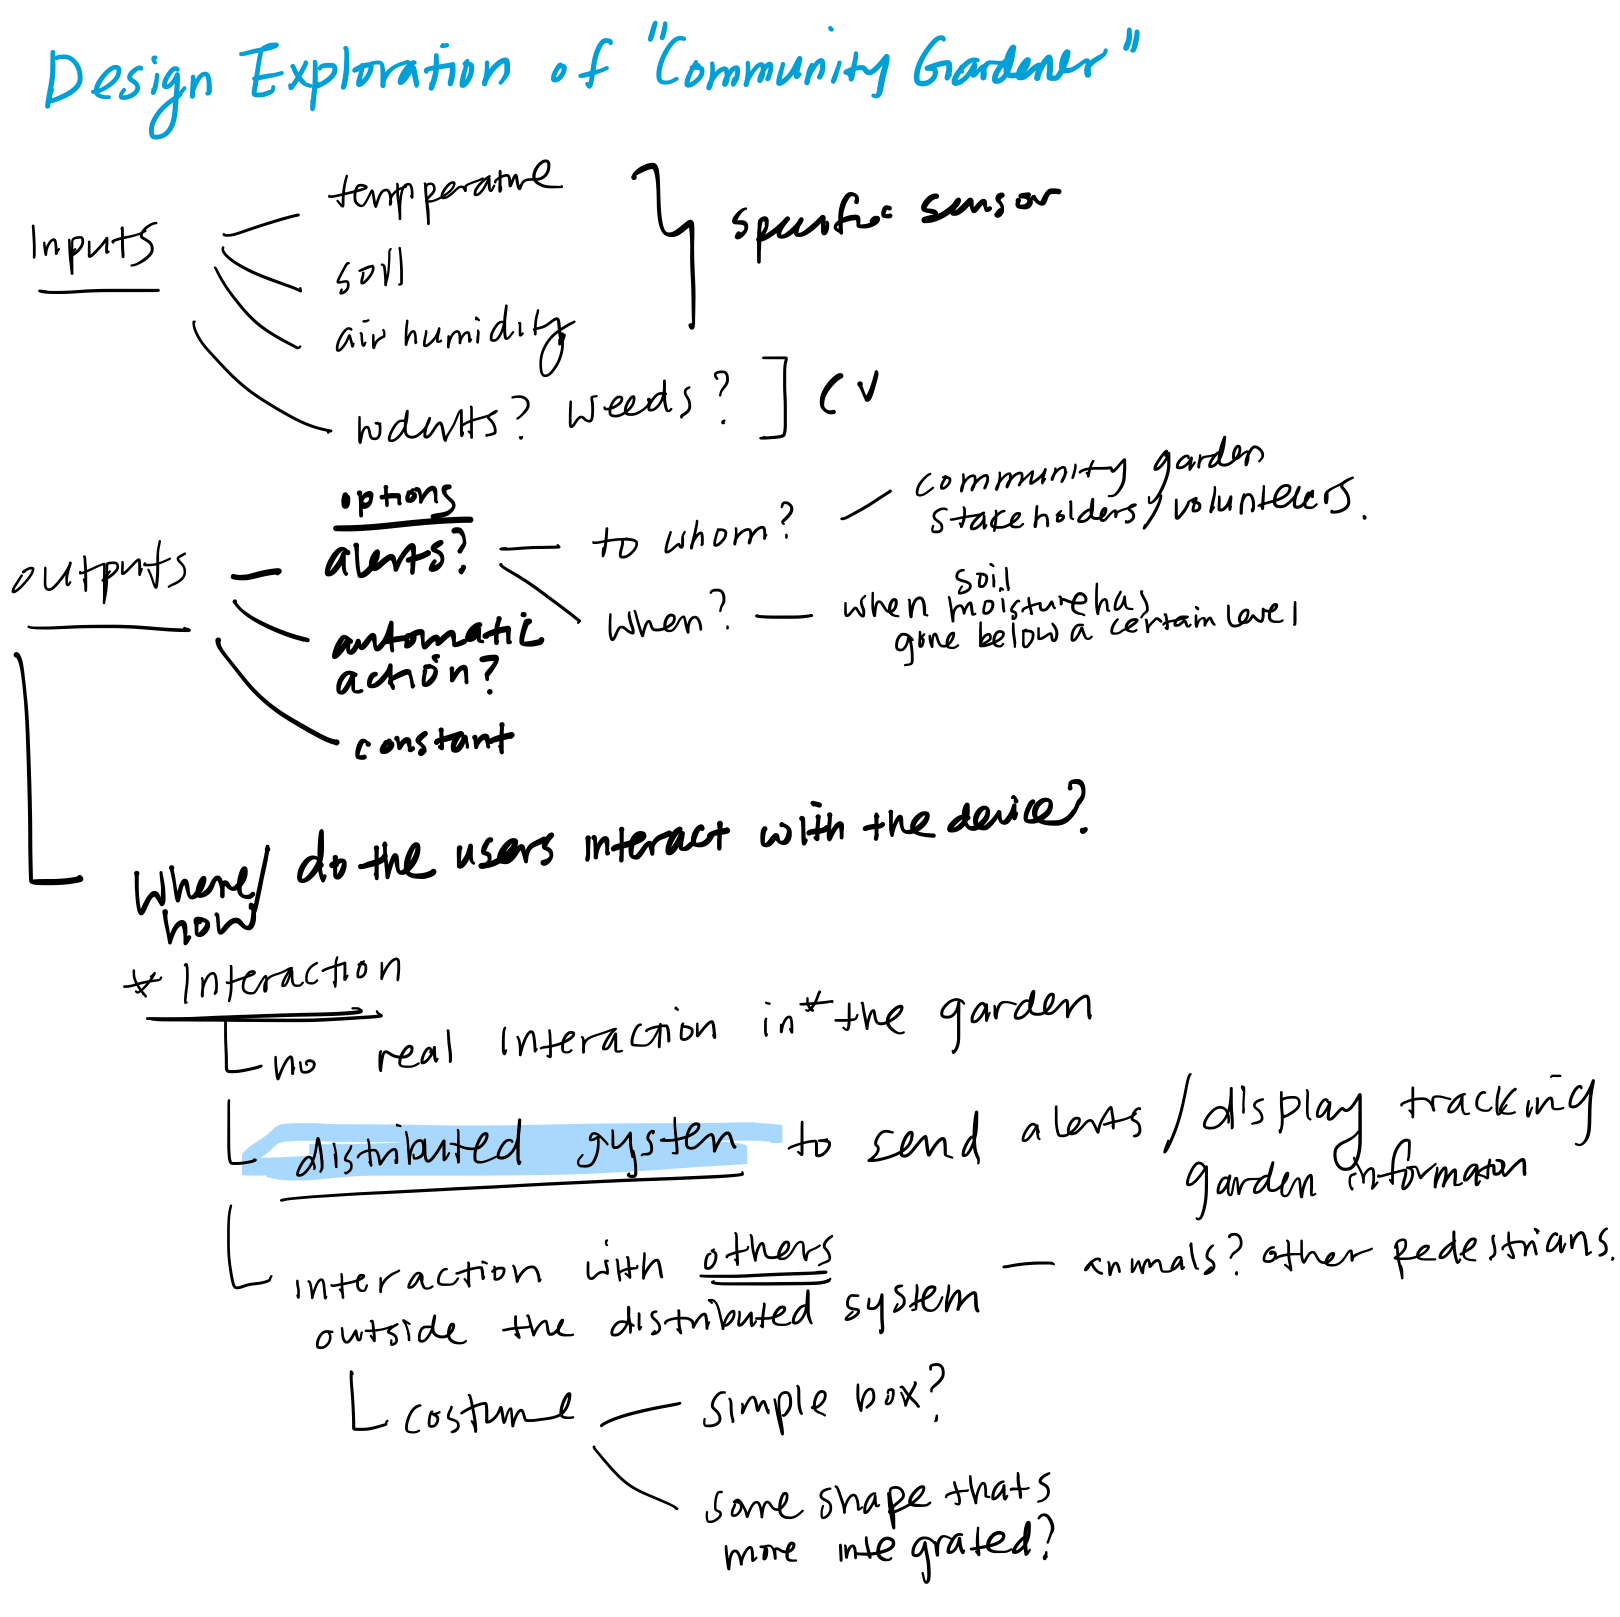 Design Exploration of "Community Gardener"
Inputs
temperature
soil
air humidity
specific sensor
rodents? weeds?
CV
outputs
options
alerts?
to whom?
community garden
stakeholders/volunteers.
when?
soil
when moisture has
gone below a certain level
automatic
action?
constant
Where/
how
do the users interact with the device?
* Interaction
no real interaction in* the garden
distributed system to send alerts / display tracking
garden information
interaction with others
outside the distributed system
animals? other pedestrians.
costume
simple box?
some shape thats
more integrated?